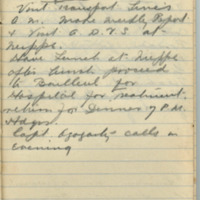 Visit Transport Lines
A.m. Make Weekly Report
& Visit A.D.V.S. at
Nieppe.
Have Lunch at Nieppe
after Lunch proceed
to Bailleul for
Hospital for
return for Dinner 7 P.M.
Hdqrs.
Capt Gogarty calls in
evening